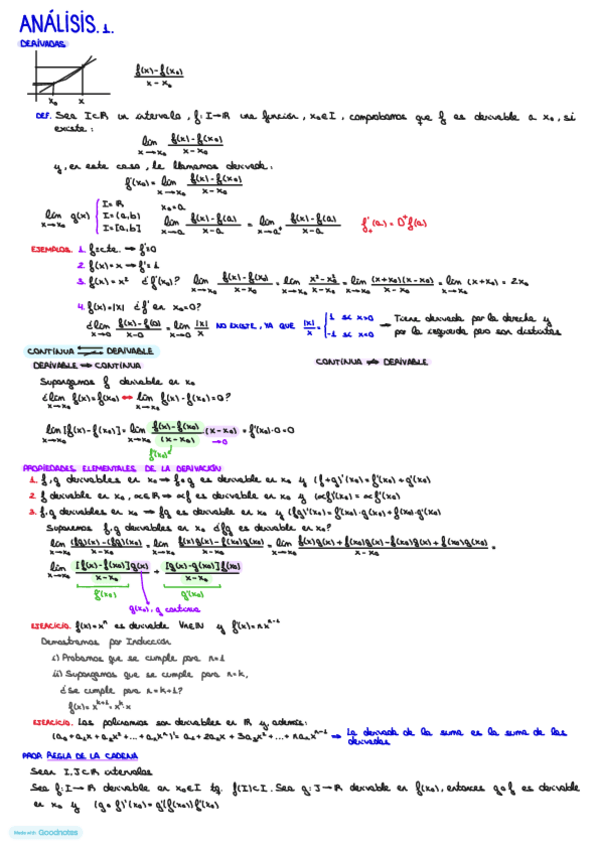 ANÁLISIS. 1.
DERIVADAS
f(x)-f(x₀)
x-x₀
x₀ x
DEF. Sea I⊂R un intervalo, f: I→R una función, x₀∈I, comprobamos que f es derivable a x₀, si
existe:
lim f(x)-f(x₀)
x→x₀ x-x₀
y, en este caso, le llamamos derivada:
f'(x₀) = lim f(x)-f(x₀)
x→x₀ x-x₀
lim g(x) { I=R
x→x₀ I=(a,b)
I=[a,b]
x₀=a
lim f(x)-f(a) = lim f(x)-f(a)
x→a x-a x→a⁺ x-a
f'₊(a) = D⁺f(a)
EJEMPLOS. 1. f=cte. → f'=0
2. f(x)=x → f'=1
3. f(x)=x² ¿f'(x₀)? lim f(x)-f(x₀) = lim x²-x₀² = lim (x+x₀)(x-x₀) = lim (x+x₀) = 2x₀
x→x₀ x-x₀ x→x₀ x-x₀ x→x₀ x-x₀ x→x₀
4. f(x)=|x| ¿f' en x₀=0?
¿lim f(x)-f(0) = lim |x| NO EXISTE, YA QUE |x| = { 1 si x>0 → Tiene derivada por la derecha y
x→0 x-0 x→0 x x -1 si x<0 por la izquierda pero son distintas
CONTINUA DERIVABLE
DERIVABLE → CONTINUA
CONTINUA ⇏ DERIVABLE
Supongamos f derivable en x₀
¿lim f(x)=f(x₀) ↔ lim f(x)-f(x₀)=0?
x→x₀ x→x₀
lim [f(x)-f(x₀)] = lim f(x)-f(x₀) · (x-x₀) = f'(x₀)·0=0
x→x₀ x→x₀ (x-x₀) →0
f'(x₀)
PROPIEDADES ELEMENTALES DE LA DERIVACIÓN
1. f, g derivables en x₀ → f+g es derivable en x₀ y (f+g)'(x₀)=f'(x₀)+g'(x₀)
2. f derivable en x₀, α∈R → αf es derivable en x₀ y (αf)'(x₀) = αf'(x₀)
3. f, g derivables en x₀ → fg es derivable en x₀ y (fg)'(x₀) = f'(x₀)·g(x₀)+f(x₀)·g'(x₀)
Suponemos f, g derivables en x₀ ¿fg es derivable en x₀?
lim (fg)(x)-(fg)(x₀) = lim f(x)g(x)-f(x₀)g(x₀) = lim f(x)g(x)+f(x₀)g(x)-f(x₀)g(x)+f(x₀)g(x₀) =
x→x₀ x-x₀ x→x₀ x-x₀ x→x₀ x-x₀
lim [f(x)-f(x₀)]g(x) + [g(x)-g(x₀)]f(x₀)
x→x₀ x-x₀ x-x₀
f'(x₀) g'(x₀)
g(x₀), g continua
EJERCICIO. f(x)=xⁿ es derivable ∀n∈N y f'(x)=nxⁿ⁻¹
Demostramos por Inducción
i) Probamos que se cumple para n=1
ii) Supongamos que se cumple para n=k,
¿Se cumple para n=k+1?
f(x)=xᵏ⁺¹=xᵏ·x
EJERCICIO. Los polinomios son derivables en R y además:
(a₀+a₁x+a₂x²+...+aₙxⁿ)'=a₁+2a₂x+3a₃x²+...+naₙxⁿ⁻¹ → La derivada de la suma es la suma de las
derivadas
PROP. REGLA DE LA CADENA
Sean I, J⊂R intervalos
Sea f: I→R derivable en x₀∈I tq. f(I)⊂J. Sea g: J→R derivable en f(x₀), entonces g∘f es derivable
en x₀ y (g∘f)'(x₀)=g'(f(x₀))f'(x₀)
Made with Goodnotes